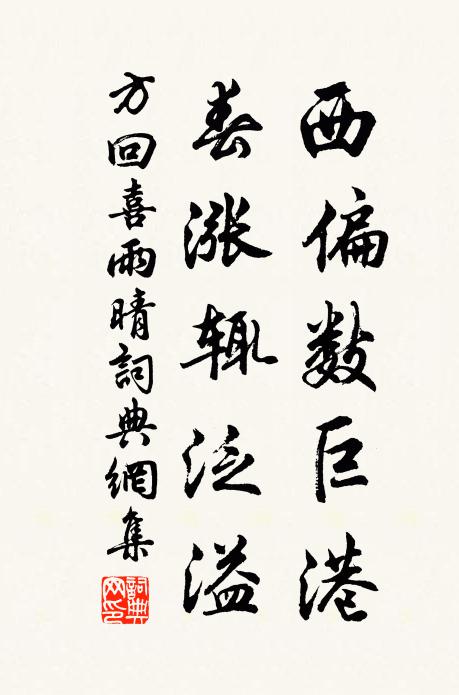 西偏数巨港
春涨辄泛溢
方回喜雨晴詞典網集
詞典網印